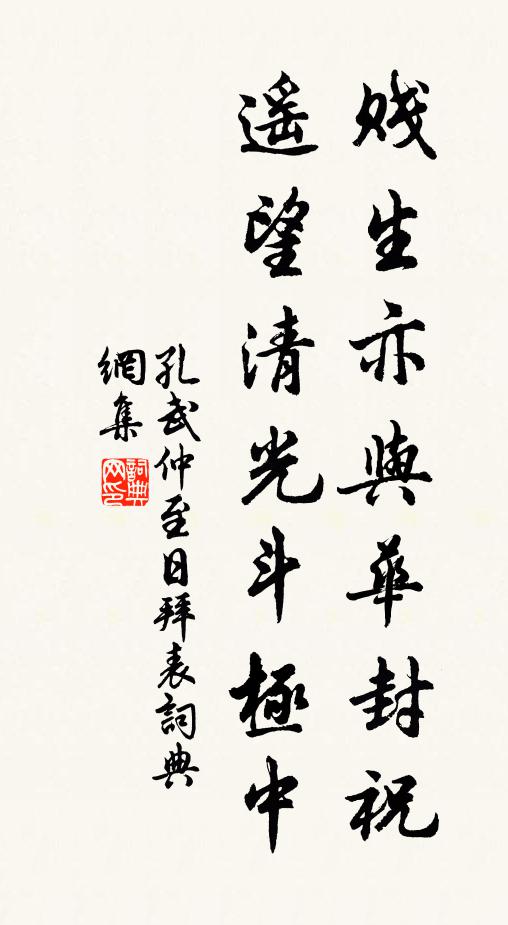 賤生亦與華封祝
遥望清光斗極中
孔武仲至日拜表詞典
網集
詞典
网印